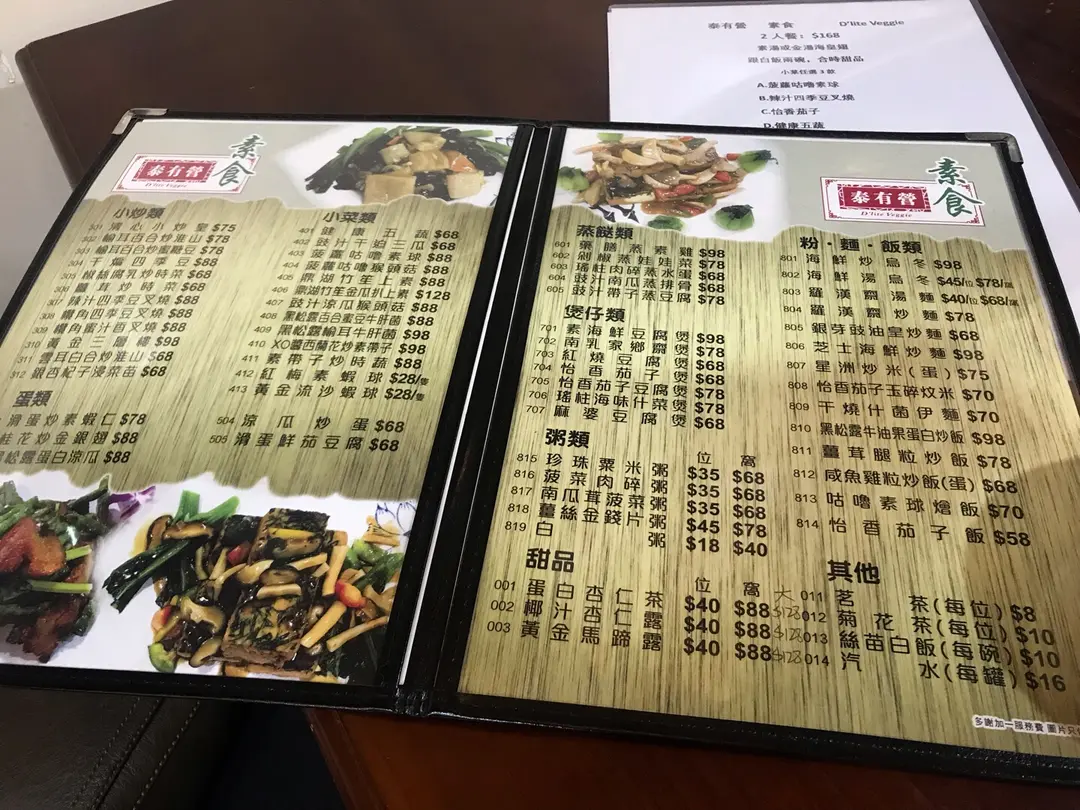 泰有營 素食 D'lite Veggie
2 人餐: $168
素湯或金湯海皇翅
跟白飯兩碗，合時甜品
小菜任選 3 款
A.菠蘿咕嚕素球
B.辣汁四季豆叉燒
C.怡香茄子
D.健康五蔬
素食
泰有營
D'lite Veggie
小炒類
301 清心小炒皇 $75
302 榆耳百合炒淮山 $78
303 榆耳百合炒蜜糖豆 $78
304 干煸四季豆 $88
305 椒絲腐乳炒時菜 $68
306 薑茸炒時菜 $68
307 辣汁四季豆叉燒 $88
308 欖角四季豆叉燒 $88
309 欖角蜜汁香叉燒 $88
310 黃金三層樓 $98
311 雲耳白合炒淮山 $68
312 銀杏杞子浸菜苗 $68
小菜類
401 健康五蔬 $68
402 豉汁干迫三瓜 $68
403 菠蘿咕嚕素球 $88
404 菠蘿咕嚕猴頭菇 $88
405 鼎湖竹笙上素 $88
406 鼎湖竹笙金瓜扒上素 $128
407 豉汁涼瓜猴頭菇 $88
408 黑松露百合蜜豆牛肝菌 $88
409 黑松露榆耳牛肝菌 $98
410 XO醬西蘭花炒素帶子 $98
411 素帶子炒時蔬 $88
412 紅梅素蝦球 $28/隻
413 黃金流沙蝦球 $28/隻
蛋類
滑蛋炒素蝦仁 $78
桂花炒金銀翅 $88
黑松露蛋白涼瓜 $88
504 涼瓜炒蛋 $68
505 滑蛋鮮茄豆腐 $68
素食
泰有營
D'lite Veggie
蒸餸類
601 藥膳蒸素雞 $98
602 剁椒蒸娃娃菜 $78
603 瑤柱肉碎蒸水蛋 $68
604 豉汁南瓜蒸排骨 $68
605 豉汁帶子蒸豆腐 $78
煲仔類
701 素海鮮豆腐煲 $98
702 南乳粗齋煲 $78
703 紅燒豆腐煲 $68
704 怡香茄子煲 $68
705 怡香茄子豆腐煲 $78
706 瑤柱味什菜煲 $78
707 麻婆豆腐煲 $68
粥類
位 窩
815 珍珠粟米粥 $35 $68
816 菠菜肉碎粥 $35 $68
817 南瓜茸菠菜粥 $35 $68
818 薑絲金錢片粥 $45 $78
819 白粥 $18 $40
甜品
位 窩 大
001 蛋白杏仁茶 $40 $88 $128
002 椰汁杏仁露 $40 $88 $128
003 黃金馬蹄露 $40 $88 $128
粉·麵·飯類
801 海鮮炒烏冬 $98
802 海鮮湯烏冬 $45/位 $78/窩
803 羅漢齋湯麵 $40/位 $68/窩
804 羅漢齋炒麵 $78
805 銀芽豉油皇炒麵 $68
806 芝士海鮮炒麵 $98
807 星洲炒米(蛋) $75
808 怡香茄子玉碎炆米 $70
809 干燒什菌伊麵 $70
810 黑松露牛油果蛋白炒飯 $98
811 薑茸腿粒炒飯 $78
812 咸魚雞粒炒飯(蛋) $68
813 咕嚕素球燴飯 $70
814 怡香茄子飯 $58
其他
011 茗茶(每位) $8
012 菊花茶(每位) $10
013 絲苗白飯(每碗) $10
014 汽水(每罐) $16
多謝加一服務費 圖片只